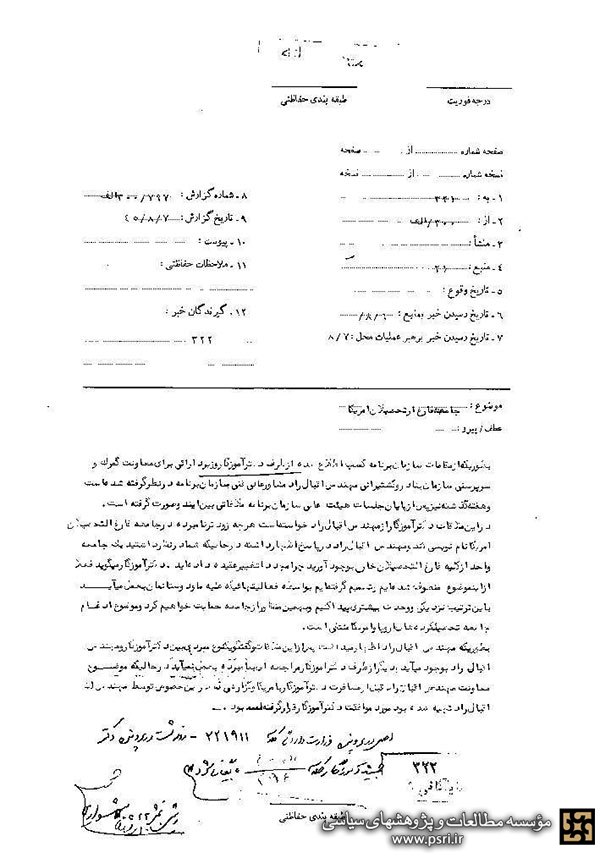 درجه فوریت
طبقه بندی حفاظتی
صفحه شماره از صفحه
نسخه شماره از نسخه
۱ - به : ۳۴۱
۲ - از : ۳۰۰/الف
۳ - منشأ :
۴ - منبع : ۲۱
۵ - تاریخ وقوع :
۶ - تاریخ رسیدن خبر بمنبع : ۸/۶/
۷ - تاریخ رسیدن خبر برهبر عملیات محل : ۸/۷
۸ - شماره گزارش : ۳۰۰/۷۹۷الف
۹ - تاریخ گزارش : ۴۵/۸/۷
۱۰ - پیوست :
۱۱ - ملاحظات حفاظتی :
۱۲ - گیرندگان خبر :
۳۲۲
موضوع : جامعه فارغ التحصیلان امریکا
عطف / پیرو :
بطوریکه از مقامات سازمان برنامه کسب اطلاع شده از طرف دکتر آموزگار برای معاونت گمرک و
سرپرستی سازمان بنادر و کشتیرانی مهندس اقبال راد مشاور عالی فنی سازمان برنامه در نظر گرفته شده است
و هفته گذشته نیز پس از پایان جلسات هیئت عالی سازمان برنامه ملاقاتی بین ایندو صورت گرفته است .
در این ملاقات دکتر آموزگار از مهندس اقبال راد خواسته است هرچه زودتر نامبرده در جامعه فارغ التحصیلان
امریکا نام نویسی کند و مهندس اقبال راد در پاسخ اظهار داشته در حالیکه شما در نظر داشتید یک جامعه
واحد از کلیه فارغ التحصیلان خارج بوجود آورید چرا مجددا تغییر عقیده داده اید . دکتر آموزگار میگوید فعلا
از این موضوع منصرف شده ایم تصمیم گرفته ایم بواسطه فعالیتهائیکه علیه ما و دوستانمان بعمل میآید
با این ترتیب نزدیکی و وحدت بیشتری پیدا کنیم و بهمین منظور از جامعه حمایت خواهیم کرد و موضوع ادغام
جامعه تحصیلکرده های اروپا و امریکا منتفی است .
بطوریکه مهندس اقبال راد اظهار میداشت پس از این ملاقات و گفتگو
اقبال راد بوجود میآید دیگر از طرف دکتر آموزگار مراجعه بعمل نمیآید در حالیکه موضوع
معاونت مهندس اقبال راد قبل از مسافرت دکتر آموزگار بامریکا و گزارشی که در این خصوص توسط مهندس
اقبال راد تهیه شده بود مورد موافقت دکتر آموزگار قرار گرفته بود .
اصل در پرونده وزارت دارائی ۲۲۱۹۱۱ - رونوشت در پرونده دکتر
۳۲۲
طبقه بندی حفاظتی
مؤسسه مطالعات و پژوهشهای سیاسی
www.psri.ir